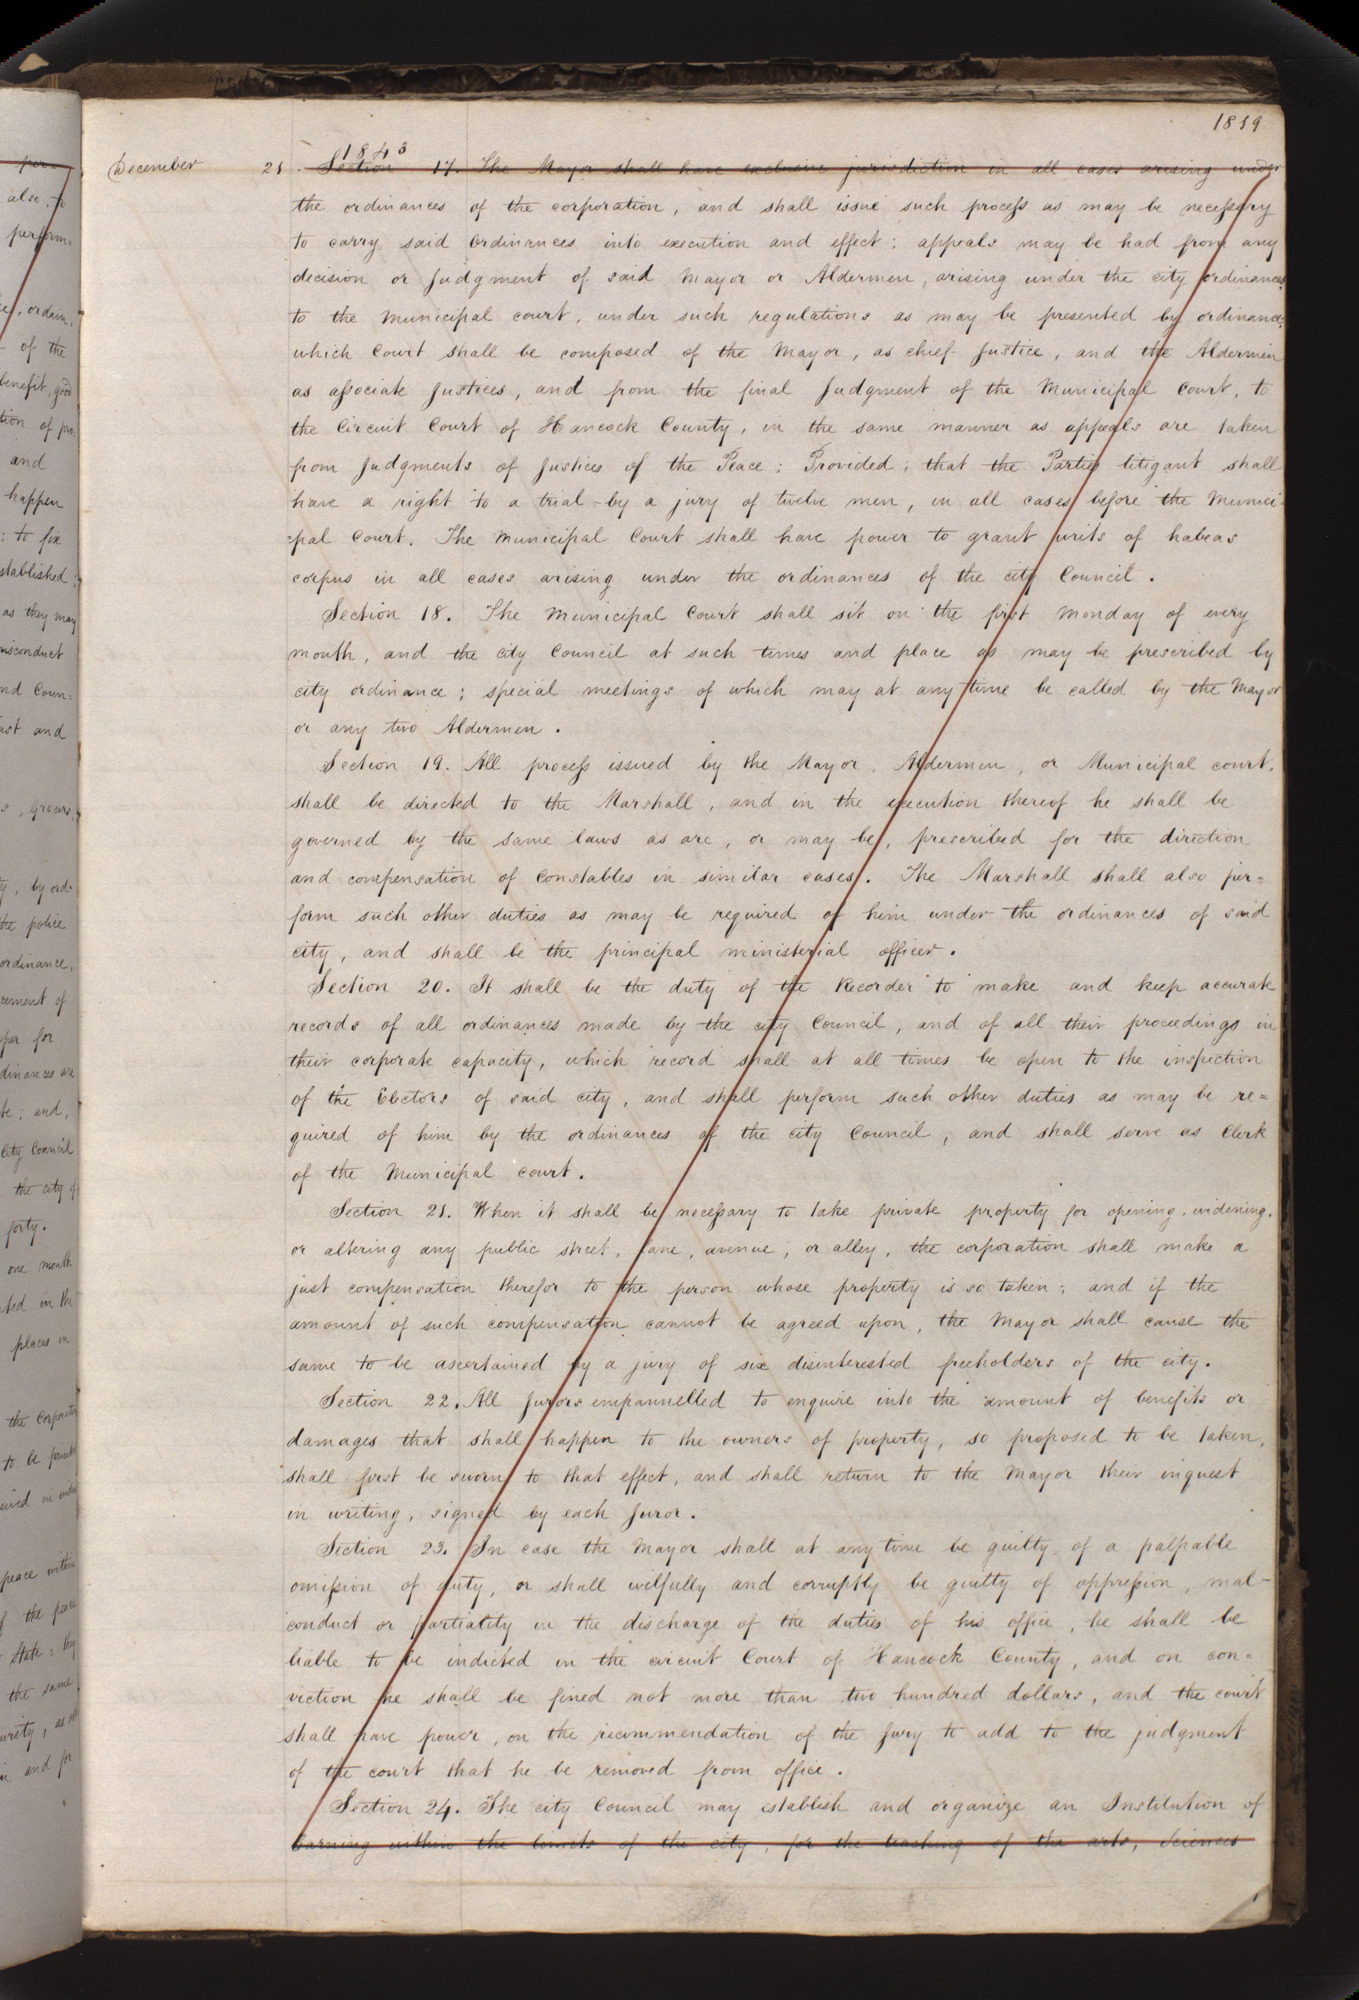 1819
1843
December 21. Section 17. The Mayor shall have exclusive jurisdiction in all cases arising under
the ordinances of the corporation, and shall issue such process as may be necessary
to carry said ordinances into execution and effect: appeals may be had from any
decision or Judgment of said Mayor or Aldermen, arising under the city ordinances,
to the Municipal court, under such regulations as may be presented by ordinance;
which Court shall be composed of the Mayor, as chief Justice, and the Aldermen
as associate Justices, and from the final Judgment of the Municipal Court, to
the Circuit Court of Hancock County, in the same manner as appeals are taken
from Judgments of Justices of the Peace: Provided; that the Parties litigant shall
have a right to a trial by a jury of twelve men, in all cases before the Munici
=pal Court. The Municipal Court shall have power to grant writs of habeas
corpus in all cases arising under the ordinances of the city Council.
Section 18. The Municipal Court shall sit on the first Monday of every
month, and the city Council at such times and place as may be prescribed by
city ordinance; special meetings of which may at any time be called by the Mayor
or any two Aldermen.
Section 19. All process issued by the Mayor, Aldermen, or Municipal court,
shall be directed to the Marshall, and in the execution thereof he shall be
governed by the same laws as are, or may be, prescribed for the direction
and compensation of constables in similar cases. The Marshall shall also per=
form such other duties as may be required of him under the ordinances of said
city, and shall be the principal ministerial officer.
Section 20. It shall be the duty of the Recorder to make and keep accurate
records of all ordinances made by the city Council, and of all their proceedings in
their corporate capacity, which record shall at all times be open to the inspection
of the Electors of said city, and shall perform such other duties as may be re=
quired of him by the ordinances of the city Council, and shall serve as Clerk
of the Municipal court.
Section 21. When it shall be necessary to take private property for opening, widening,
or altering any public street, lane, avenue, or alley, the corporation shall make a
just compensation therefor to the person whose property is so taken; and if the
amount of such compensation cannot be agreed upon, the Mayor shall cause the
same to be ascertained by a jury of six disinterested freeholders of the city.
Section 22. All Jurors empannelled to enquire into the amount of benefits or
damages that shall happen to the owners of property, so proposed to be taken,
shall first be sworn to that effect, and shall return to the Mayor their inquest
in writing, signed by each Juror.
Section 23. In case the Mayor shall at any time be guilty of a palpable
omission of duty, or shall wilfully and corruptly be guilty of oppression, mal-
conduct or partiality in the discharge of the duties of his office, he shall be
liable to be indicted in the circuit Court of Hancock County, and on con=
viction he shall be fined not more than two hundred dollars, and the court
shall have power, on the recommendation of the Jury to add to the judgment
of the court that he be removed from office.
Section 24. The city Council may establish and organize an Institution of
learning within the limits of the city, for the teaching of the arts, Sciences